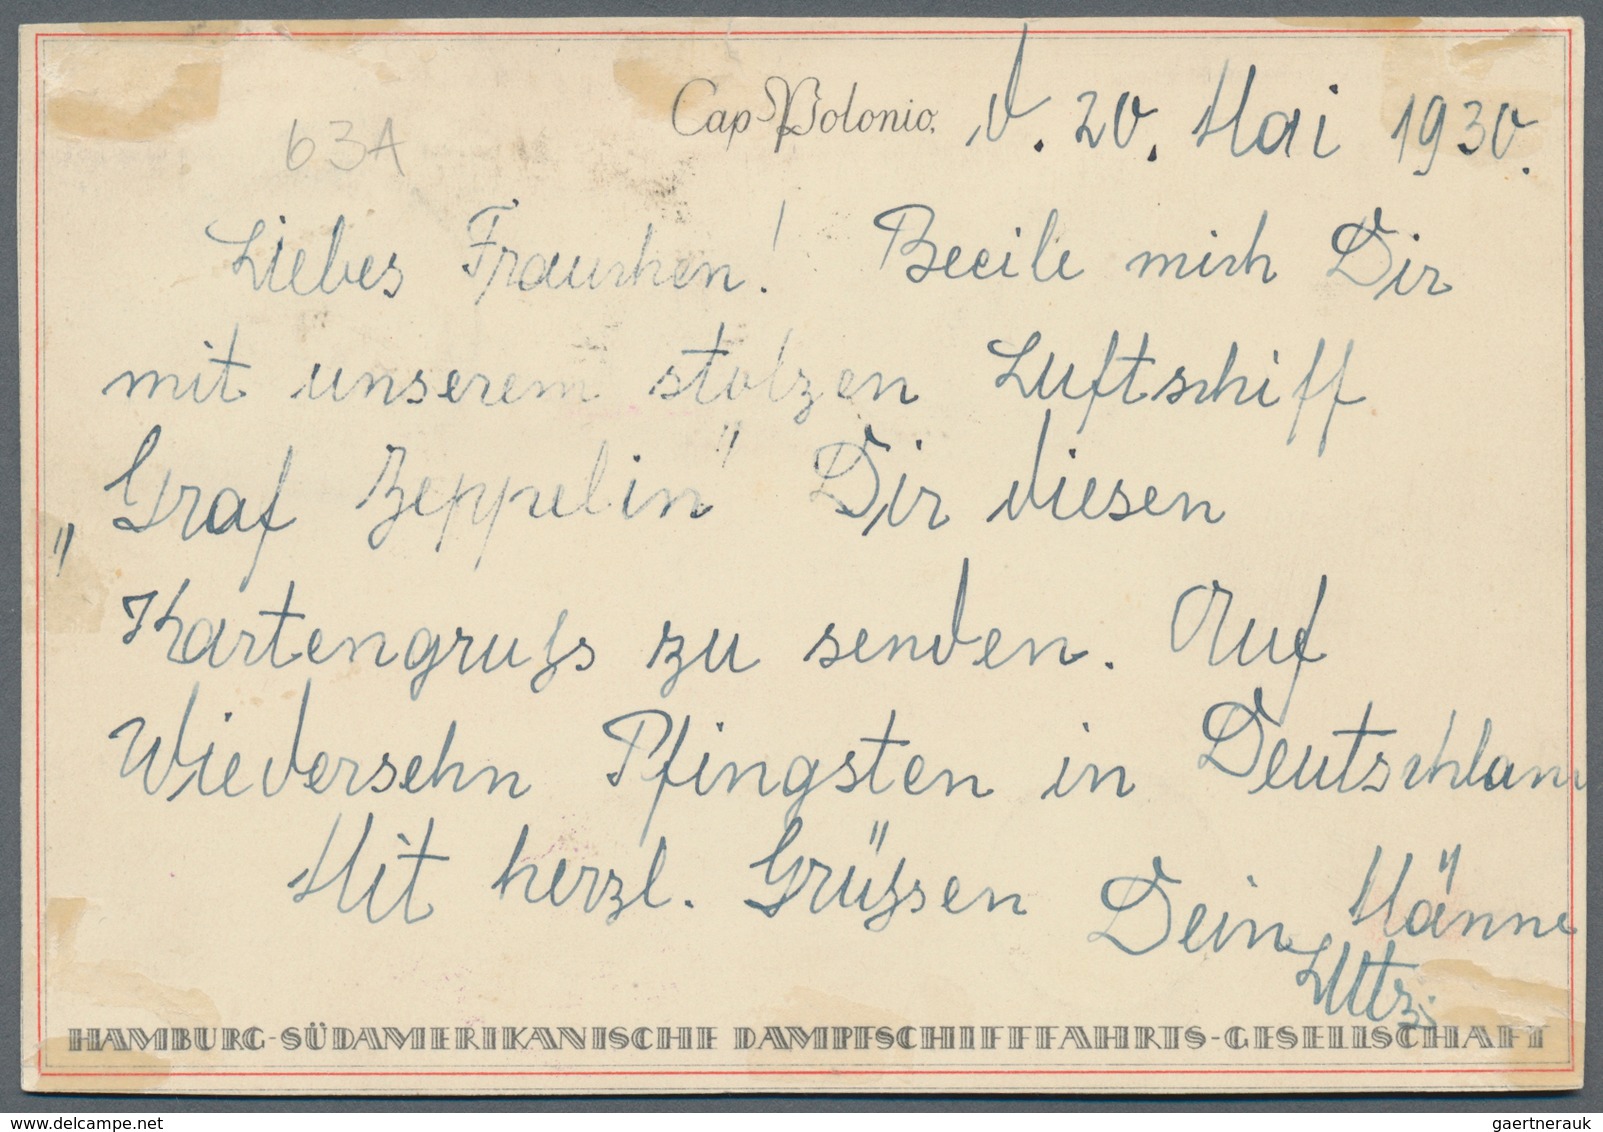 Cap Polonio, d. 20. Mai 1930.
63A
Liebes Frauchen! Beeile mich Dir
mit unserem stolzen Luftschiff
„Graf Zeppelin" Dir diesen
Kartengruss zu senden. Auf
Wiedersehn Pfingsten in Deutschland
Mit herzl. Grüssen Dein Männe
Lutz.
HAMBURG-SÜDAMERIKANISCHE DAMPFSCHIFFFAHRTS-GESELLSCHAFT
www.delcampe.net
gaertnerauk